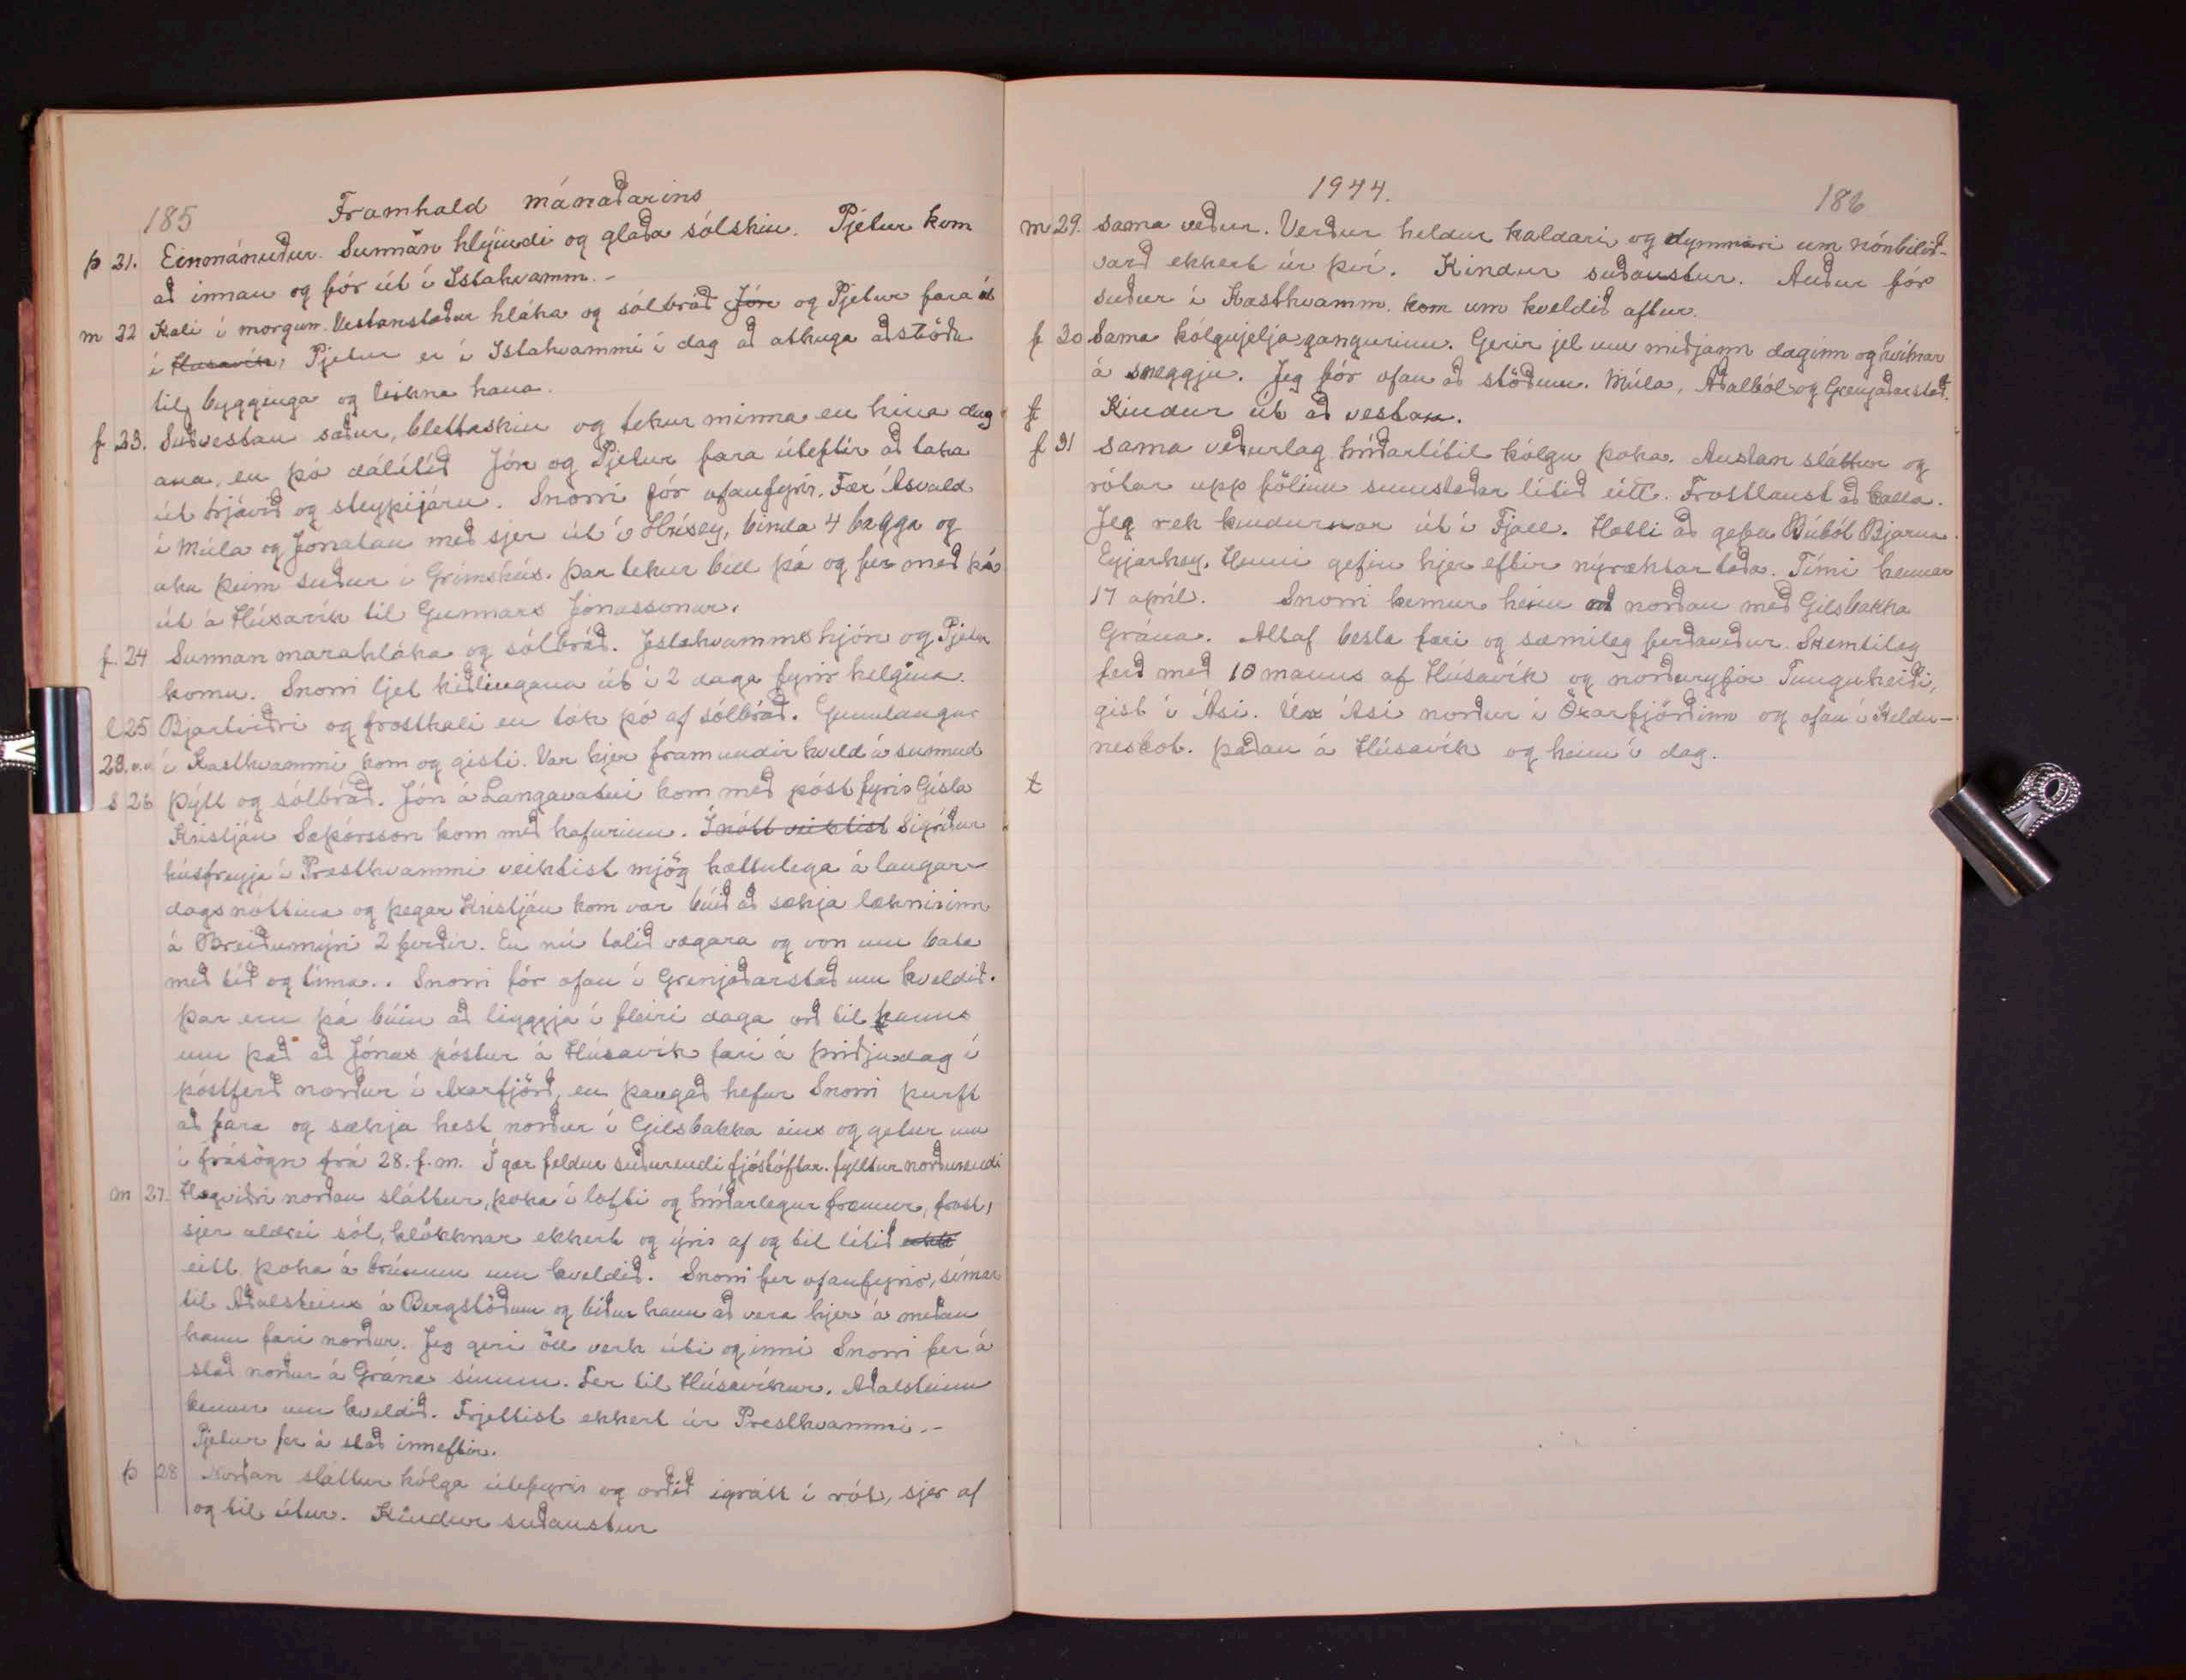 185 Framhald mánaðarins
þ 21. Einmánuður. Sunnan hlýindi og glaða sólskin. Pjetur kom
að innan og fór út í Ístahvamm. -
m 22 Kali í morgun. Vestanstaður hláka og sólbráð Jón og Pjetur fara út
í Húsavík, Pjetur er í Ístahvammi í dag að athuga aðstöðu
til bygginga og teikna hana.
f 23. Suðvestan sæður, blettaskin og tekur minna en hina dag-
ana, en þó dálítið Jón og Pjetur fara úteftir að taka
út trjávið og steypijárn. Snorri fór ofanfyrir. Fær Ásvald
í Múla og Jónatan með sjer út í Hrísey, binda 4 bagga og
aka þeim suður í Grímshús. Þar tekur bíll þá og fer með þá
út á Húsavík til Gunnars Jónassonar.
f. 24 Sunnan marahláka og sólbráð. Ístahvammshjón og Pjetur
komu. Snorri ljet kiðlingana út í 2 daga fyrir helgina.
l 25 Bjartviðri og frostkali en tók þó af sólbráð. Gunnlaugur
í Kasthvammi kom og gisti. Var hjer fram undir kveld á sunnud
s 26 Þýtt og sólbráð. Jón á Langavatni kom með póst fyrir Gísla
Kristján Sæþórsson kom með hafurinn. Í nótt veiktist Sigríður
húsfreyja í Presthvammi veiktist mjög hættulega á laugar-
dagsnóttina og þegar Kristján kom var búið að sækja læknirinn
á Breiðumýri 2 ferðir. En nú talið vægara og von um bata
með tíð og tíma.. Snorri fór ofan í Grenjaðarstað um kveldið.
Þar eru þá búin að liggja í fleiri daga orð til hanns
um það að Jónas póstur á Húsavík fari á þriðjudag í
póstferð norður í Axarfjörð, en þangað hefur Snorri þurft
að fara og sækja hest norður í Gilsbakka eins og getur um
í frásögn frá 28. f.m. Í gær feldur suðurendi fjóstóftar. fylltur norðurendi
m 27. Hægviðri norðan sláttur, þoka í lofti og hríðarlegur fremur, frost,
sjer aldrei sól, klökknar ekkert og ýrir af og til lítið ekki
eitt. þoka á brúnum um kveldið. Snorri fer ofanfyrir, símar
til Aðalsteins á Bergstöðum og biður hann að vera hjer á meðan
hann fari norður. Jeg geri öll verk úti og inni Snorri fer á
stað norður á Grána sínum. Fer til Húsavíkur. Aðalsteinn
kemur um kveldið. Frjettist ekkert úr Presthvammi. -
Pjetur fer á stað inneftir.
þ 28 Norðan sláttur kólga útefyrir og orðið ígrátt í rót, sjer af
og til útur. Kindur suðaustur
1944. 186
m 29. sama veður. Verður heldur kaldari og dymmari um nónbilið-
varð ekkert úr því. Kindur suðaustur. Auður fór
suður í Kasthvamm. kom um kveldið aftur.
f 30 Sama kólgujeljagangurinn. Gerir jel um miðjann daginn og hvítnar
á snöggju. Jeg fór ofan að stöðum. Múla, Aðalból og Grenjaðarstað.
Kindur út að vestan.
f 31 sama veðurlag hríðarlítil kólgu þoka. Austan sláttur og
rótar upp fölinu sumstaðar lítið eitt. Frostlaust að kalla.
Jeg rek kindurnar út í Fjall. Hætti að gefa Búbót Bjarna-
Eyjarhey. Henni gefin hjer eftir nýræktar taða. Tími hennar
17 apríl. Snorri kemur heim að norðan með Gilsbakka
Grána. Altaf besta færi og sæmileg ferðaveður. Skemtileg
ferð með 10 manns af Húsavík og norðuryfir Tunguheiði,
gist í Ási. Úr Ási norður í Öxarfjörðinn og ofan í Keldu-
neskot. þaðan á Húsavík og heim í dag.
t